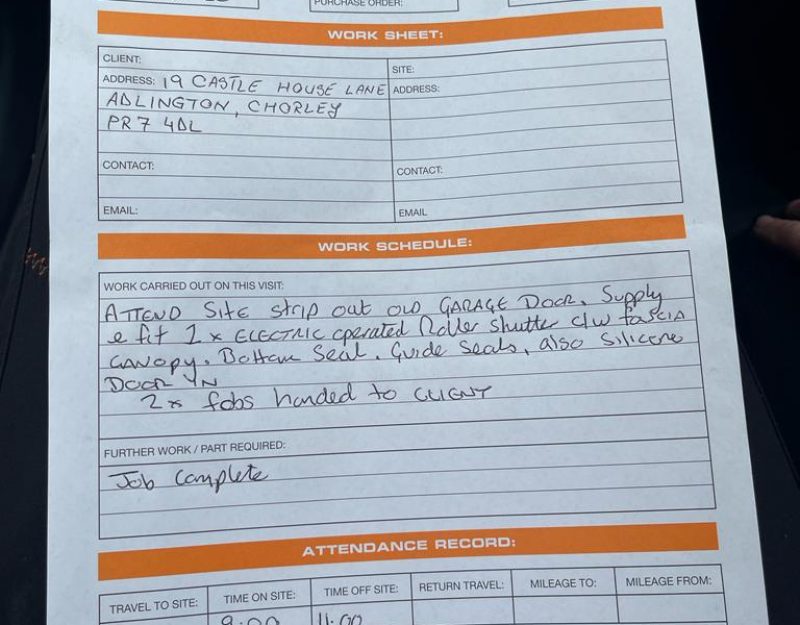 PURCHASE ORDER:
WORK SHEET:
CLIENT:
SITE:
ADDRESS: 19 CASTLE HOUSE LANE
ADDRESS:
ADLINGTON, CHORLEY
PR7 4DL
CONTACT:
CONTACT:
EMAIL:
EMAIL
WORK SCHEDULE:
WORK CARRIED OUT ON THIS VISIT:
ATTEND SITE strip out OLD GARAGE DOOR. Supply
e fit 1x ELECTRIC operated Roller Shutter c/w fascia
CANOPY. Bottom Seal. Guide Seals, also Silicone
DOOR IN
2x fobs handed to CLIENT
FURTHER WORK / PART REQUIRED:
Job Complete
ATTENDANCE RECORD:
TRAVEL TO SITE: TIME ON SITE: TIME OFF SITE: RETURN TRAVEL: MILEAGE TO: MILEAGE FROM:
9:00 11.00